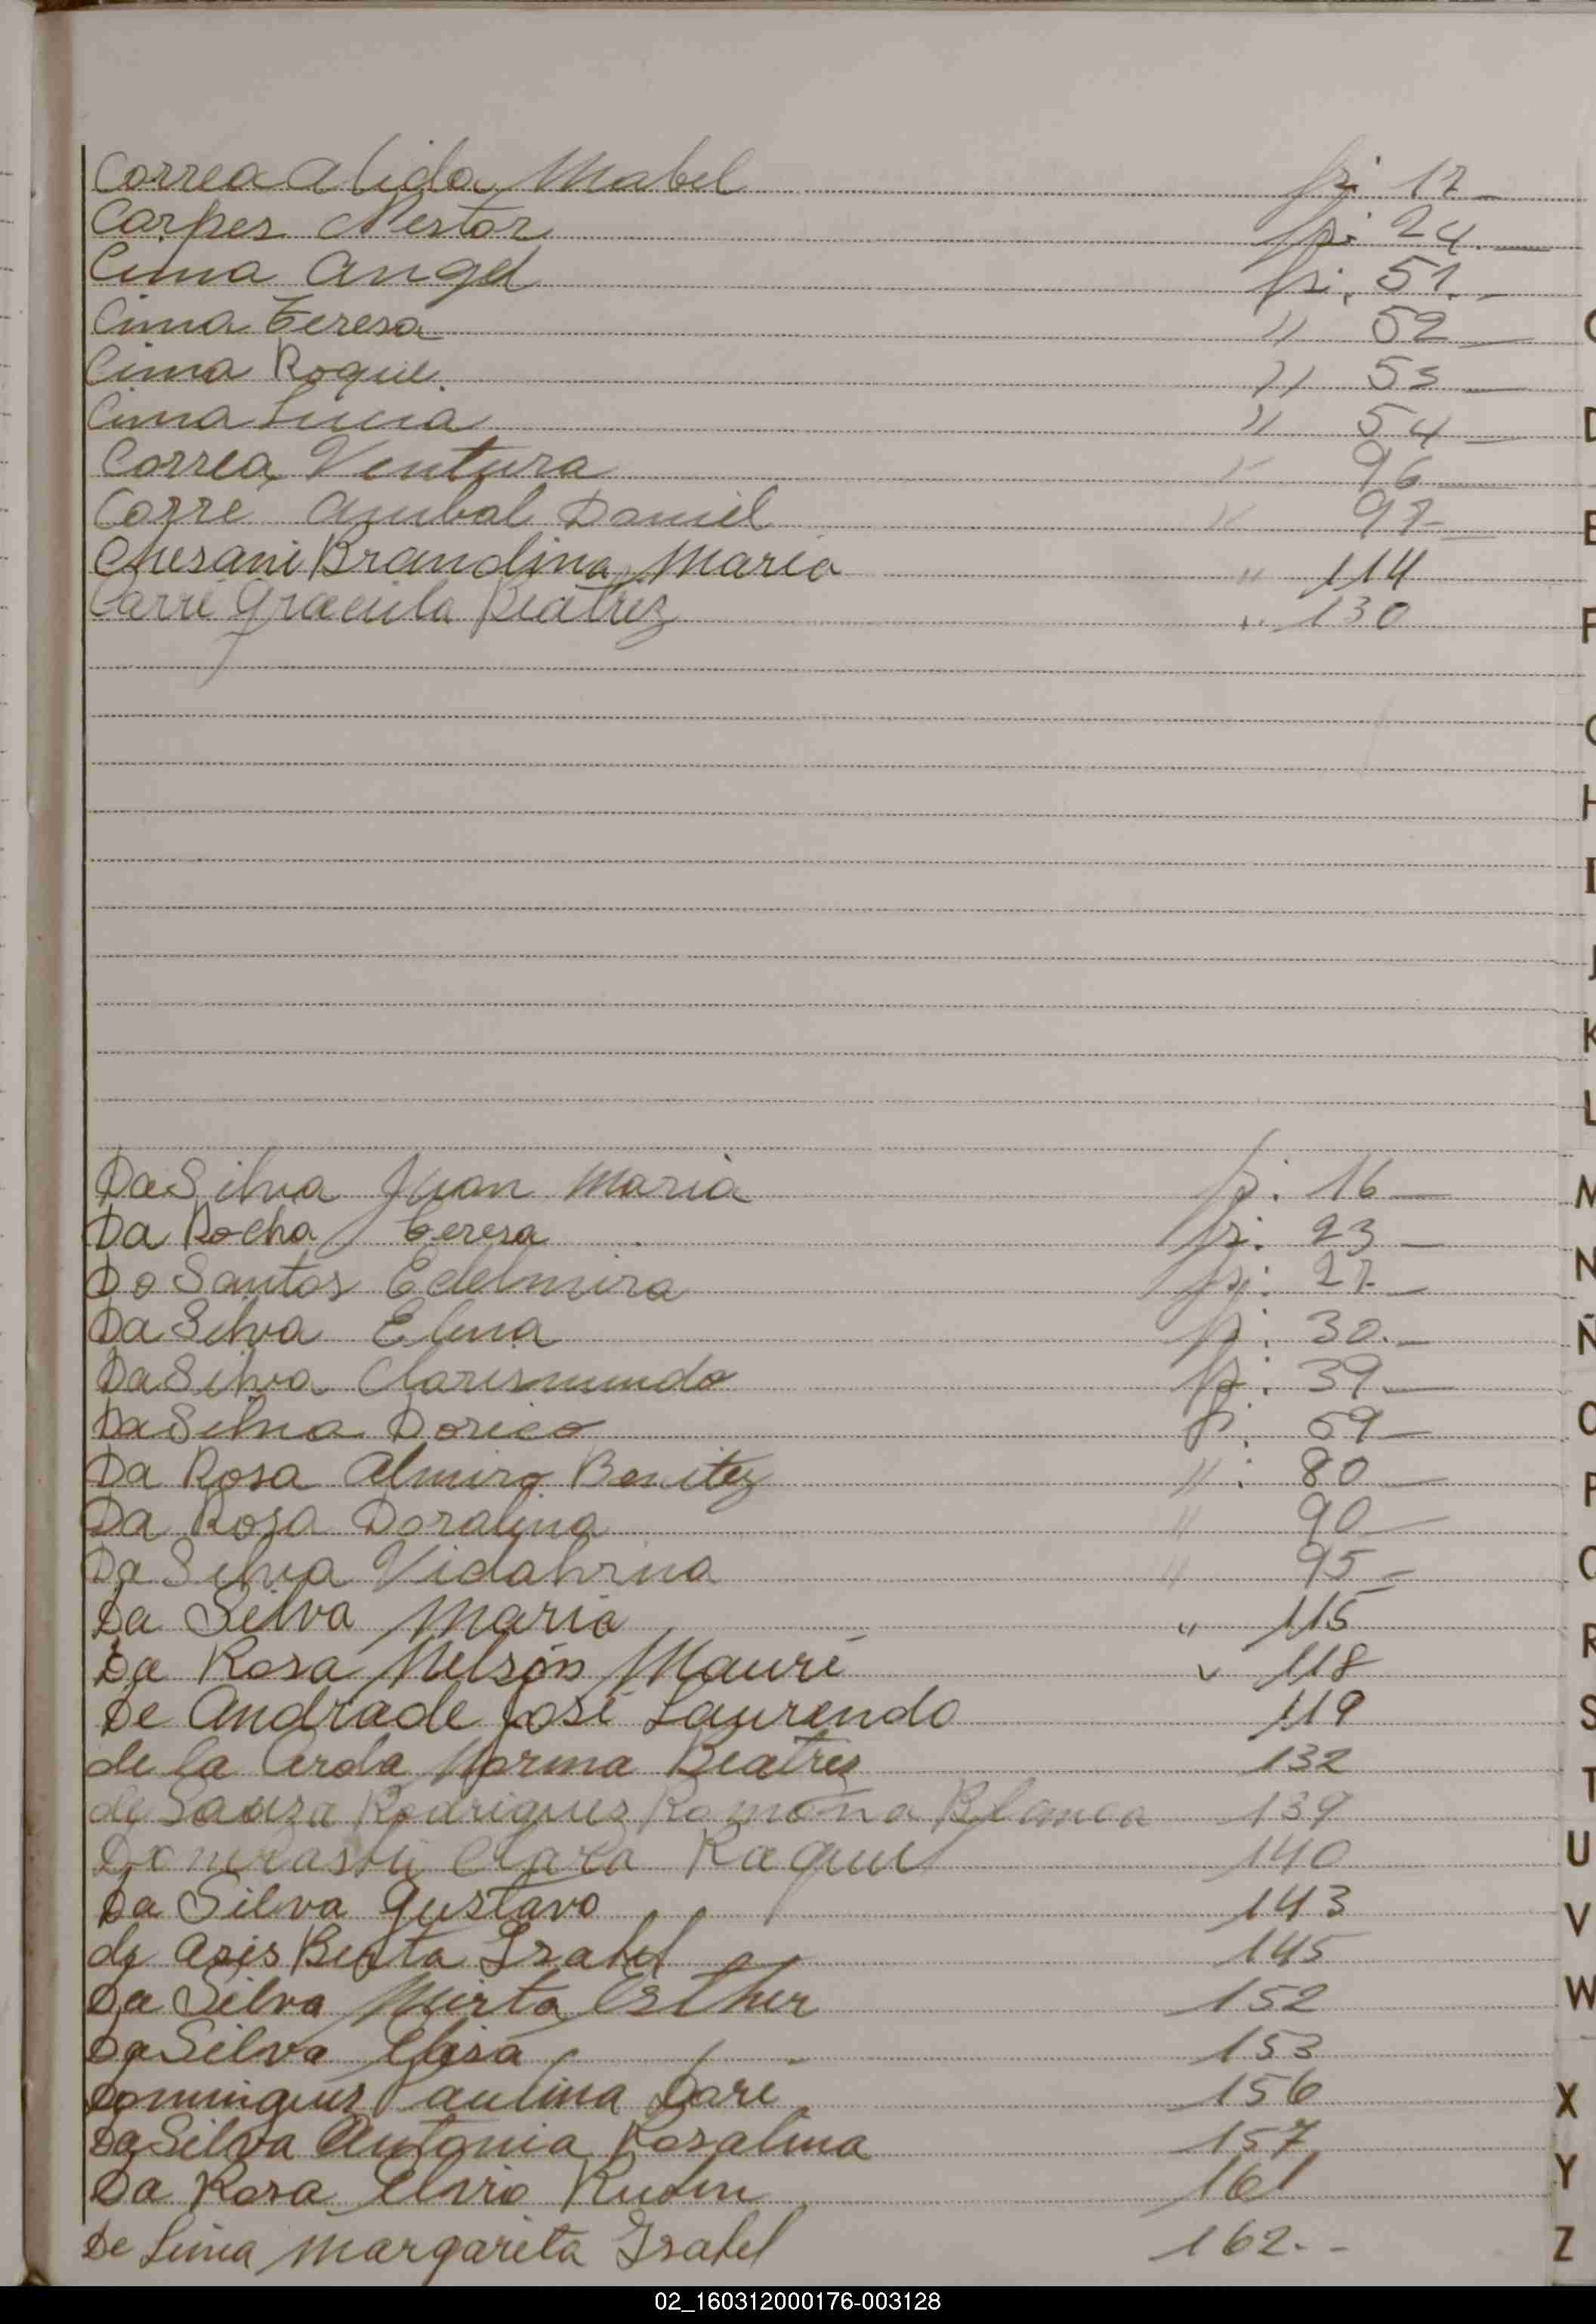 Correa Alida Mabel fs: 17
Carpes Nestor fs: 24.
Cima Angel fs: 51.
Cima Teresa " 52
Cima Roque. " 53
Cima Lucia " 54
Correa Ventura " 96
Corre Anibal Daniel " 97
Chesani Brandina Maria " 114
Carré Graciela Beatriz " 130
Da Silva Juan Maria fs: 16
Da Rocha Teresa fs: 23
Do Santos Edelmira fs: 27.
Da Silva Elena fs: 30.
Da Silva Clarismundo fs: 39
Da Silva Dorico fs: 59
Da Rosa Almiro Benitez ": 80
Da Rosa Doralina " 90
Da Silva Vidalvina " 95
Da Silva Maria " 115
Da Rosa Nelson Mauri " 118
De Andrade José Laurendo 119
de la Cerda Norma Beatriz 132
de Souza Rodriguez Ramona Blanca 139
Clara Raquel 140
Da Silva Gustavo 143
de Asis Berta Isabel 145
Da Silva Mirta Esther 152
Da Silva Elisa 153
Dominguez Paulina Dore 156
Da Silva Antonia Rosalina 157
Da Rosa Elvio Ruben 161
De Lima Margarita Isabel 162.-
D
E
F
H
J
K
L
M
N
Ñ
P
R
S
T
U
V
W
X
Y
Z
02_160312000176-003128